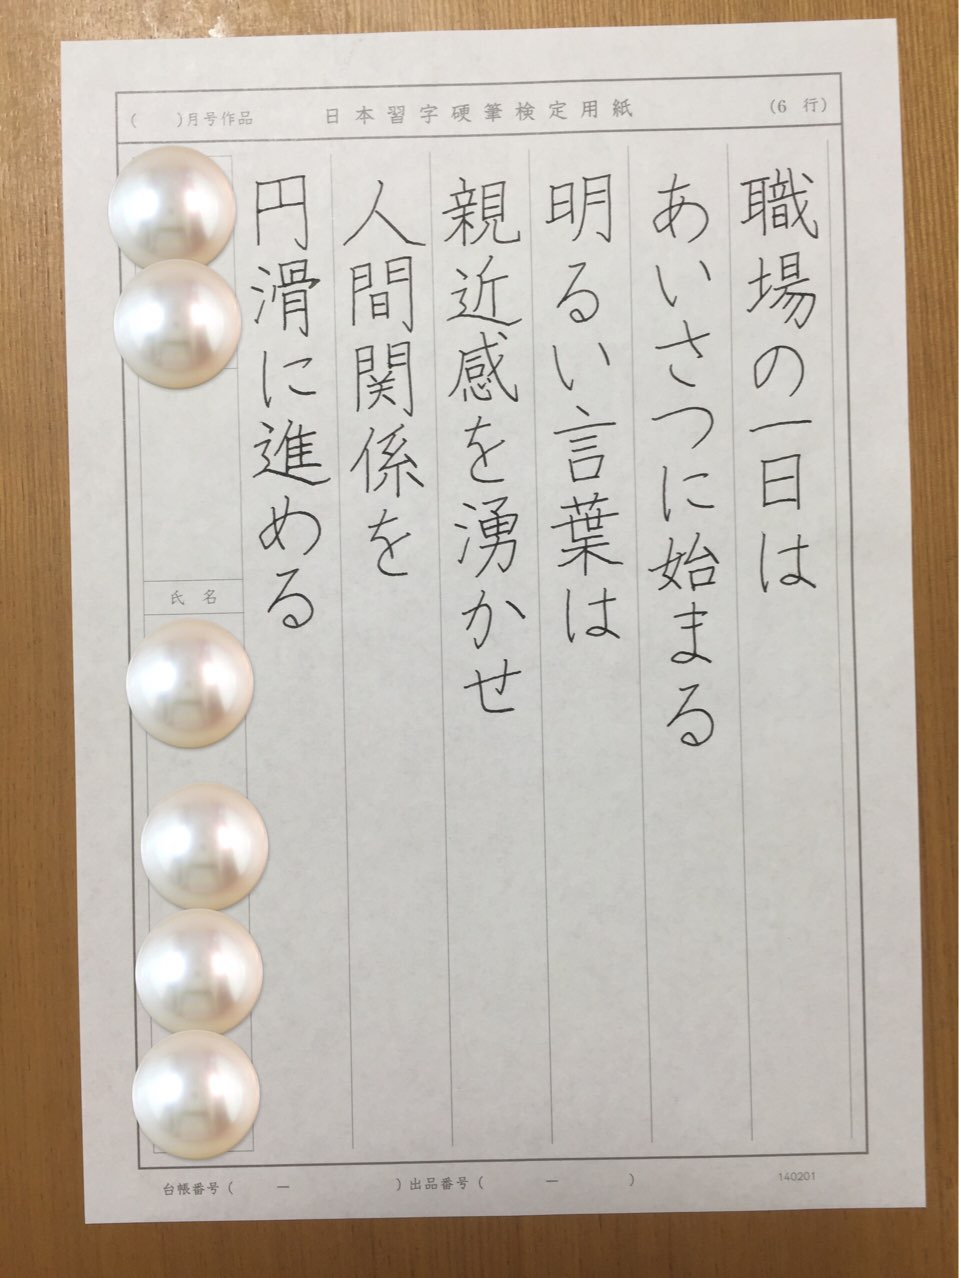 (　　)月号作品　日本習字硬筆検定用紙　(6 行)
職場の一日は
あいさつに始まる
明るい言葉は
親近感を湧かせ
人間関係を
円滑に進める
氏 名
台帳番号 (　　－　　) 出品番号 (　　－　　)
140201